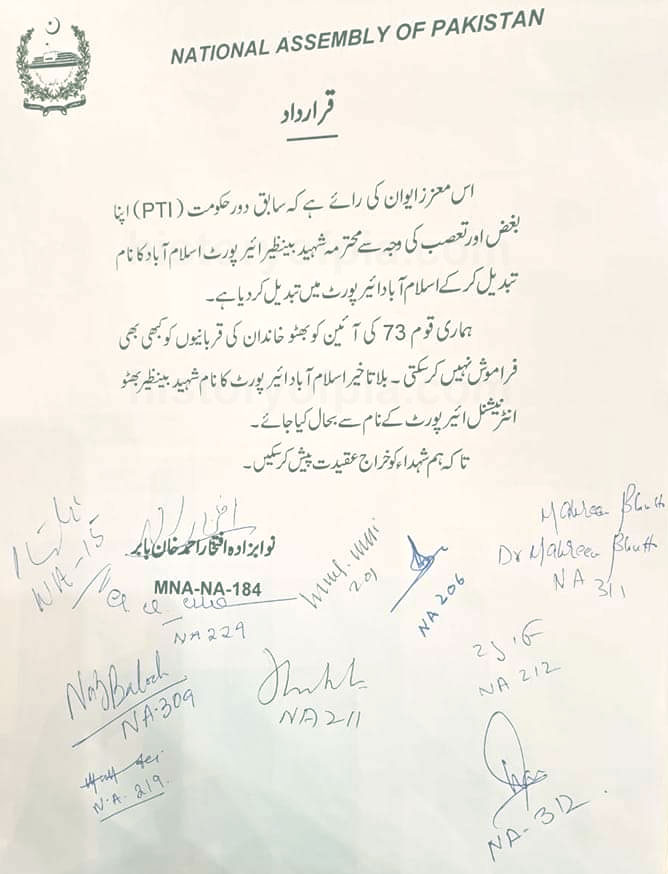 NATIONAL ASSEMBLY OF PAKISTAN
قرارداد
اس معزز ایوان کی رائے ہے کہ سابق دور حکومت (PTI) اپنا
بغض اور تعصب کی وجہ سے محترمہ شہید بینظیر ائیرپورٹ اسلام آباد کا نام
تبدیل کر کے اسلام آباد ائیرپورٹ میں تبدیل کر دیا ہے۔
ہماری قوم 73 کی آئین کو بھٹو خاندان کی قربانیوں کو کبھی بھی
فراموش نہیں کر سکتی۔ بلا تاخیر اسلام آباد ائیرپورٹ کا نام شہید بینظیر بھٹو
انٹرنیشنل ائیرپورٹ کے نام سے بحال کیا جائے۔
تاکہ ہم شہداء کو خراج عقیدت پیش کر سکیں۔
نوابزادہ افتخار احمد خان بابر
MNA-NA-184
NA-15
NA 229
201
NA 206
Mahreen Bhutto
Dr Mahreen Bhutto
NA 311
Naz Baloch
NA-309
NA 211
NA 212
N.A-219.
NA-312
historyofpia.com
historyofpia.com